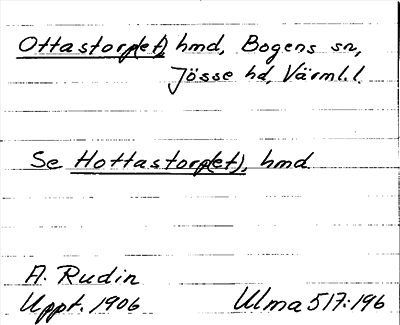 Ottastorp(et), hmd, Bogens sn,
Jösse hd, Värml.l.
Se Hottastorp(et), hmd.
A. Rudin
Uppt. 1906 Ulma 517:196